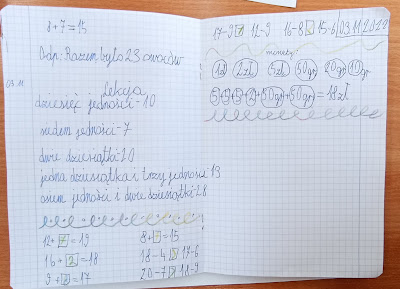 8+7=15
Odp: Razem było 23 owoców
03.11
Lekcja
dziesięć jedności-10
siedem jedności-7
dwie dziesiątki-20
jedna dziesiątka i trzy jedności 13
osiem jedności i dwie dziesiątki 28
12+7=19
8+7=15
16+2=18
18-4 17-6
9+8=17
20-7 11-9
17-9 12-9 16-8 15-6 03.11.2019
monety:
1zł 2zł 5zł 50gr 20gr 10gr
5+5+5+2+50gr+50gr=18zł